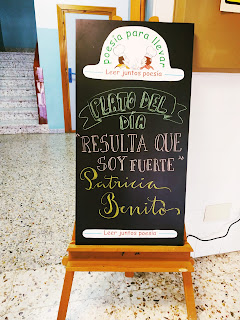 poesía para llevar
Leer juntos poesía
PLATO DEL
DÍA
RESULTA QUE
SOY FUERTE
Patricia
Benito
Leer juntos poesía